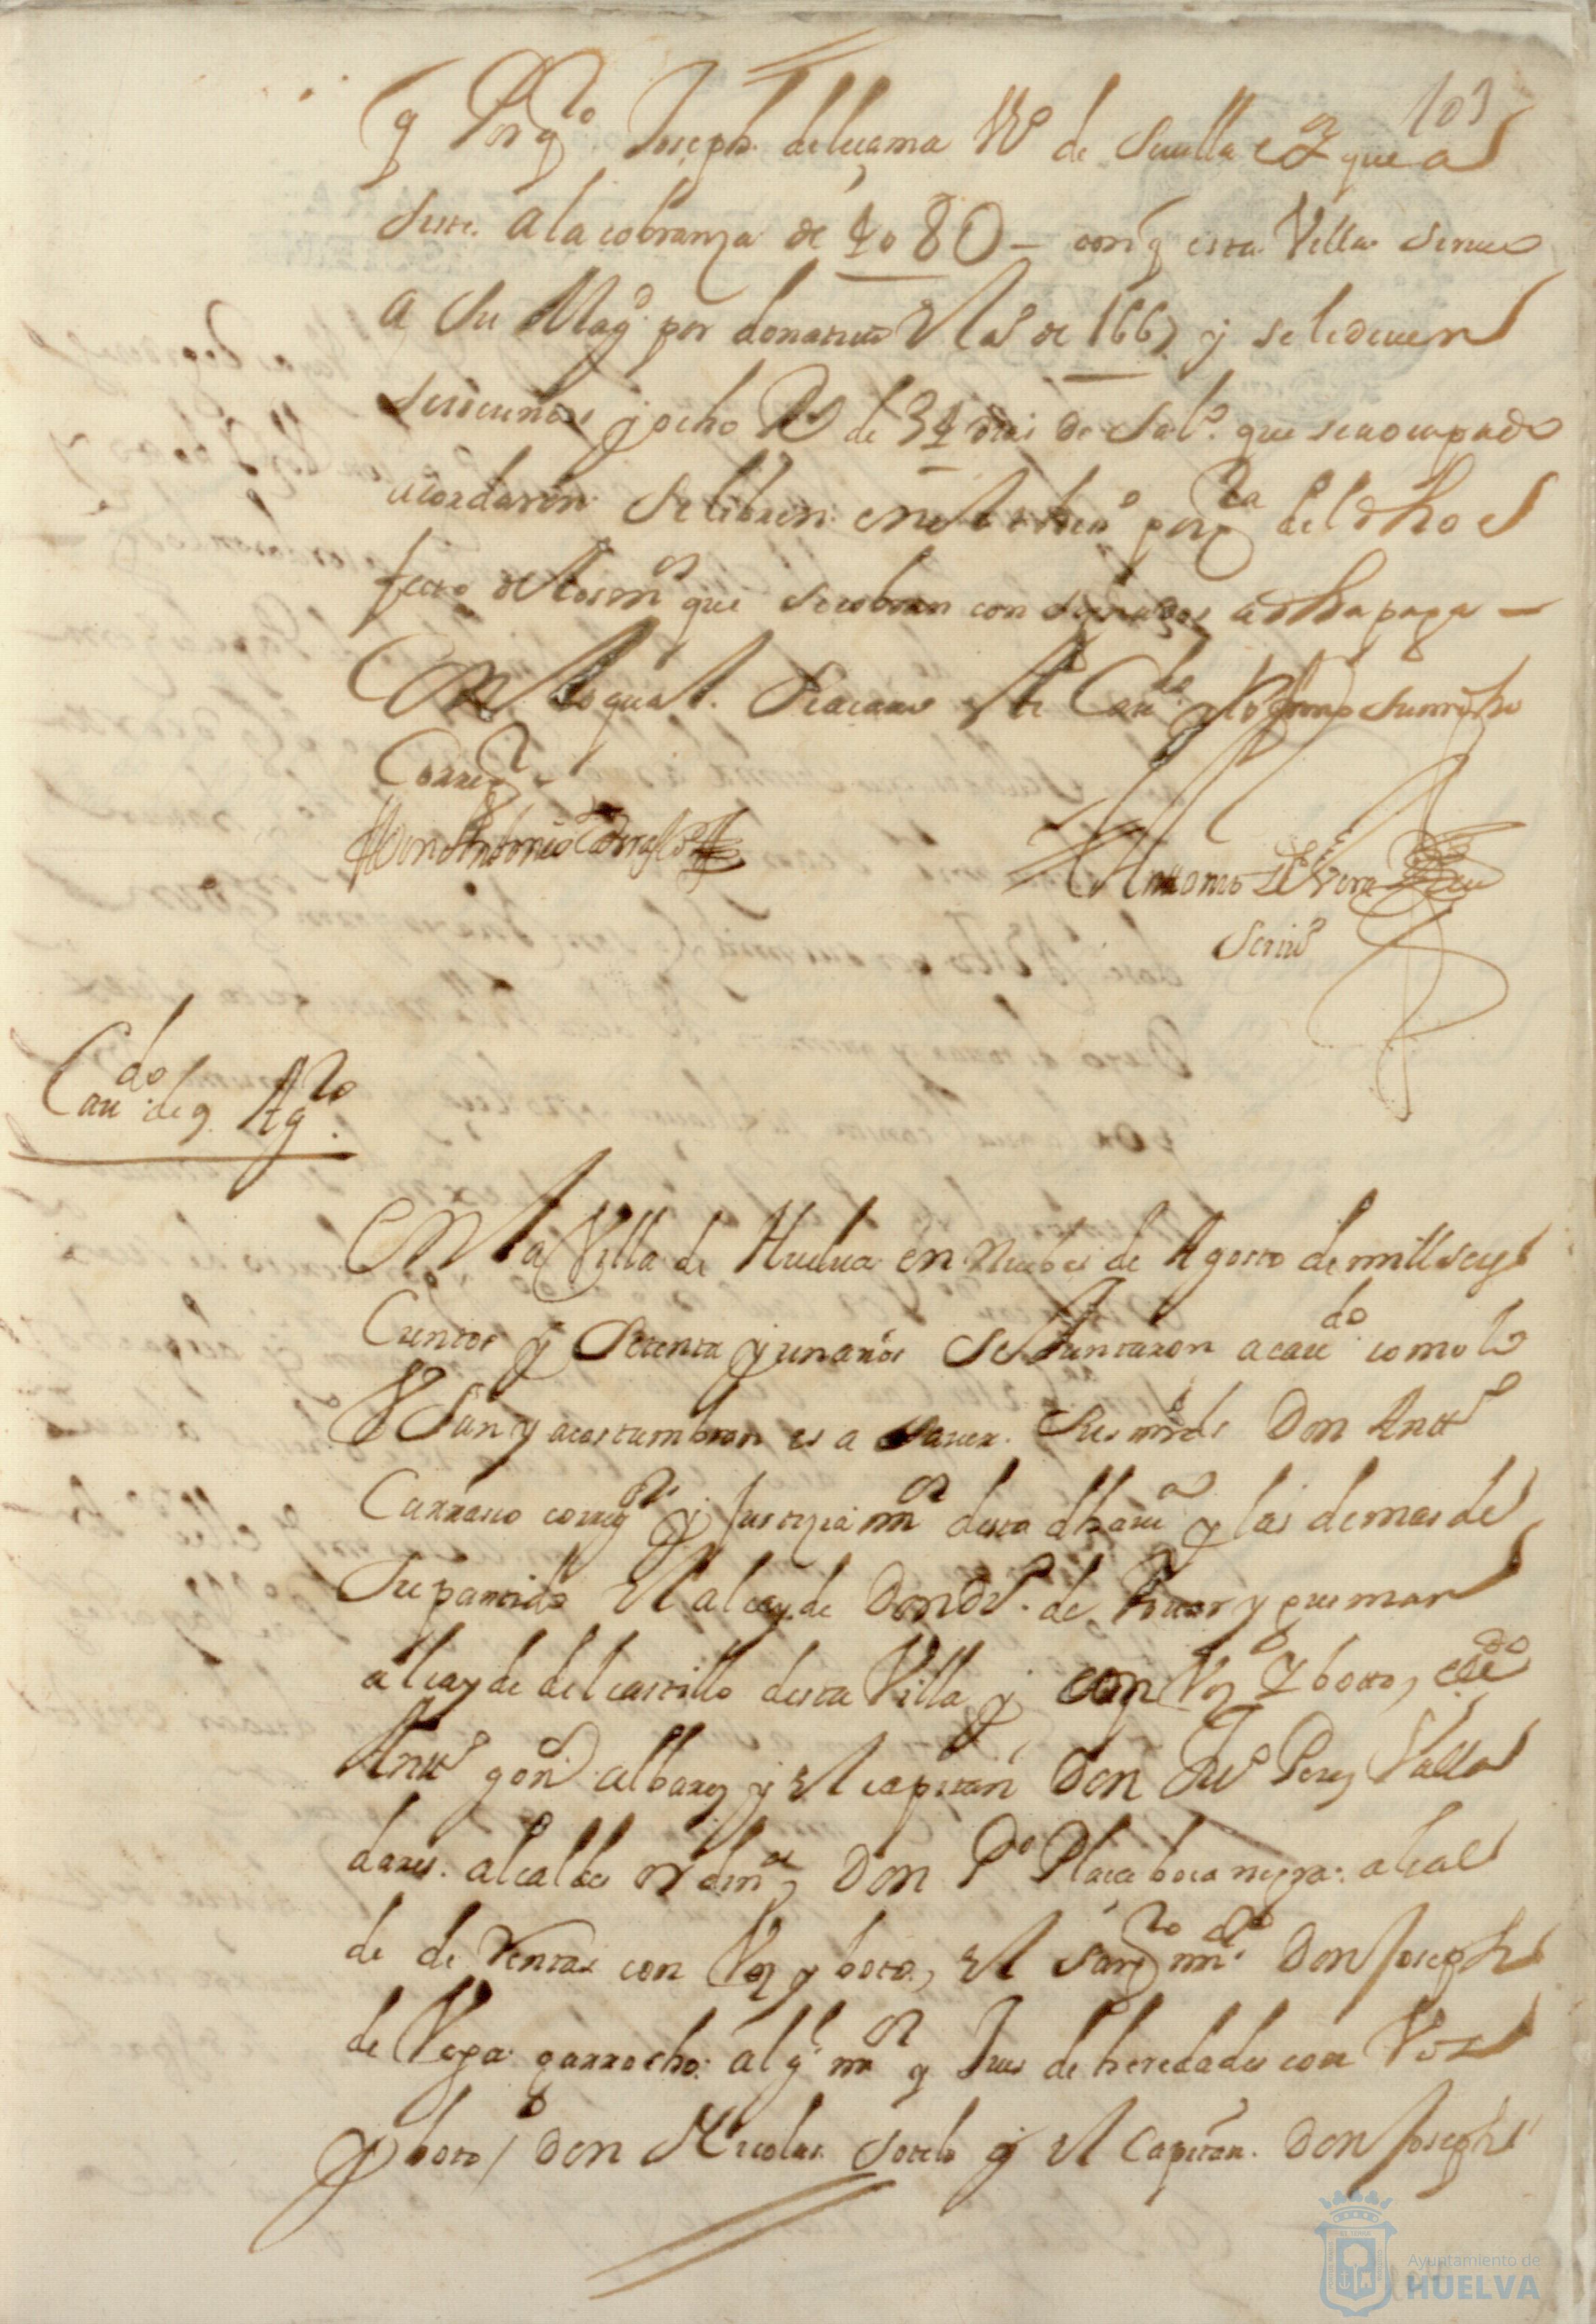 103
y Porq^to Joseph deleçama V^o de Seuilla ex^or que a
siste a la cobranza de 4o80 — con q esta Villa siruio
a Su Mag^d por donatiuo el as^o de 1667 y se le deuen
seiscientos y ocho R^s de 34 dias de sal^o que se a ocupado
acordaron se libren en este por q^ta del dho e
fecto de los m^rs que se cobran consignados a dha paga —
En lo qual se acauo este Cau^do y lo firmo su mrd dho
Correg^or —
Don Antonio Carrasco
Antonio de Vera
Scriu^o
Cau^do de 9 Ag^to
En la Villa de Huelua en nuebe de Agosto de mill seys
Cientos y setenta y un años se Juntaron a cau^do como lo
Usan y acostumbran es a sauer Sus mrds Don Antt^o
Carrasco correg^or y Justizia m^or desta dha uª y las demas de
su partido el alcayde Don D^o de Touar y guzman
alcayde del castillo desta Villa y con Voz y boto,
Antt^o gon^s albarez y el capitan Don Ju^o Perez Valla
dares alcaldes ordin^os, Don P^o Plaça bocanegra alcal
de de Ventas con Voz y boto, el sarg^to m^or Don Joseph
de Vega garrocho alg^l m^or y Jues de heredades con Voz
y boto / Don Nicolas Sotelo y el Capitan Don Joseph
Ayuntamiento de
HUELVA